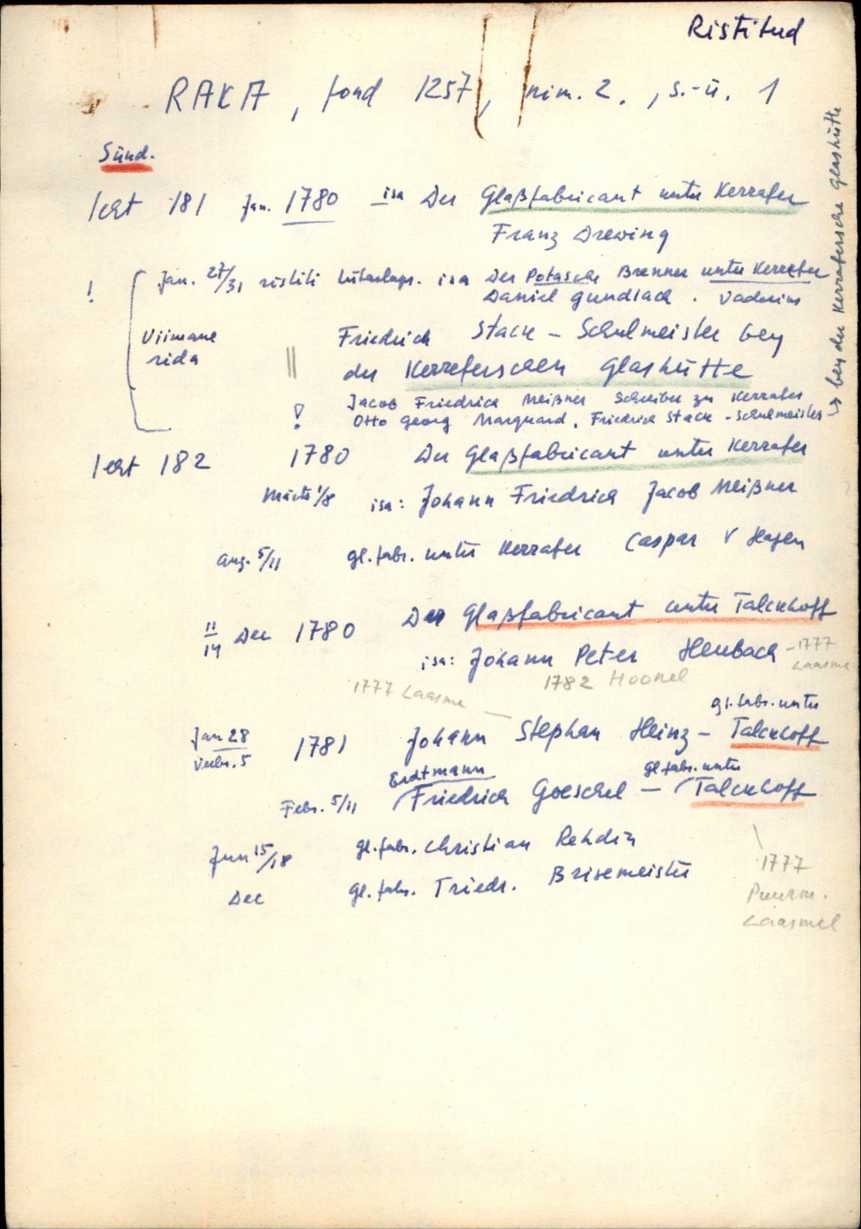 Ristitud
RAKA, fond 1257, nim. 2., s.-ü. 1
Sünd.
leht 181 Jan. 1780 isa Der Glaßfabricant unter Kerrafer
Franz Drewing
! Jan. 27/31 ristiti tütarlaps. isa Der Potasche Brenner unter Kerrafer
Daniel Gundlach. Vaderins
Viimane Friedrich Stack - Schulmeister bey
rida || der Kerreferschen Glashütte
Jacob Friedrich Meißner Schreiber zu Kerrafer
! Otto Georg Marquard, Friedrich Stack - Schulmeister → bey der Kerrafersche Glashütte
leht 182 1780 Der Glaßfabricant unter Kerrafer
Märts 1/8 isa: Johann Friedrich Jacob Meißner
Aug. 5/11 gl.fabr. unter Kerrafer Caspar v Hagen
11/14 Dec 1780 Der Glaßfabricant unter Talckhoff
isa: Johann Peter Heubach - 1777 Laasme
1777 Laasme — 1782 Hoonel
gl.fabr. unter
Jan 28 1781 Johann Stephan Heinz - Talckhoff
Veebr. 5
Erdtmann gl.fabr. unter
Febr. 5/11 Friedrich Goeschel - Talckhoff
Jun 15/18 gl.fabr. Christian Rehdin
Dec gl.fabr. Friedr. Brisemeister
1777
Laasmel